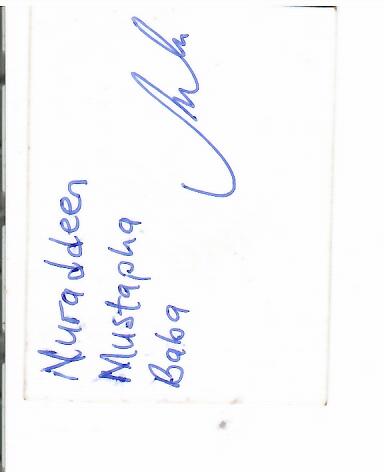 Nuraddeen
Mustapha
Baba